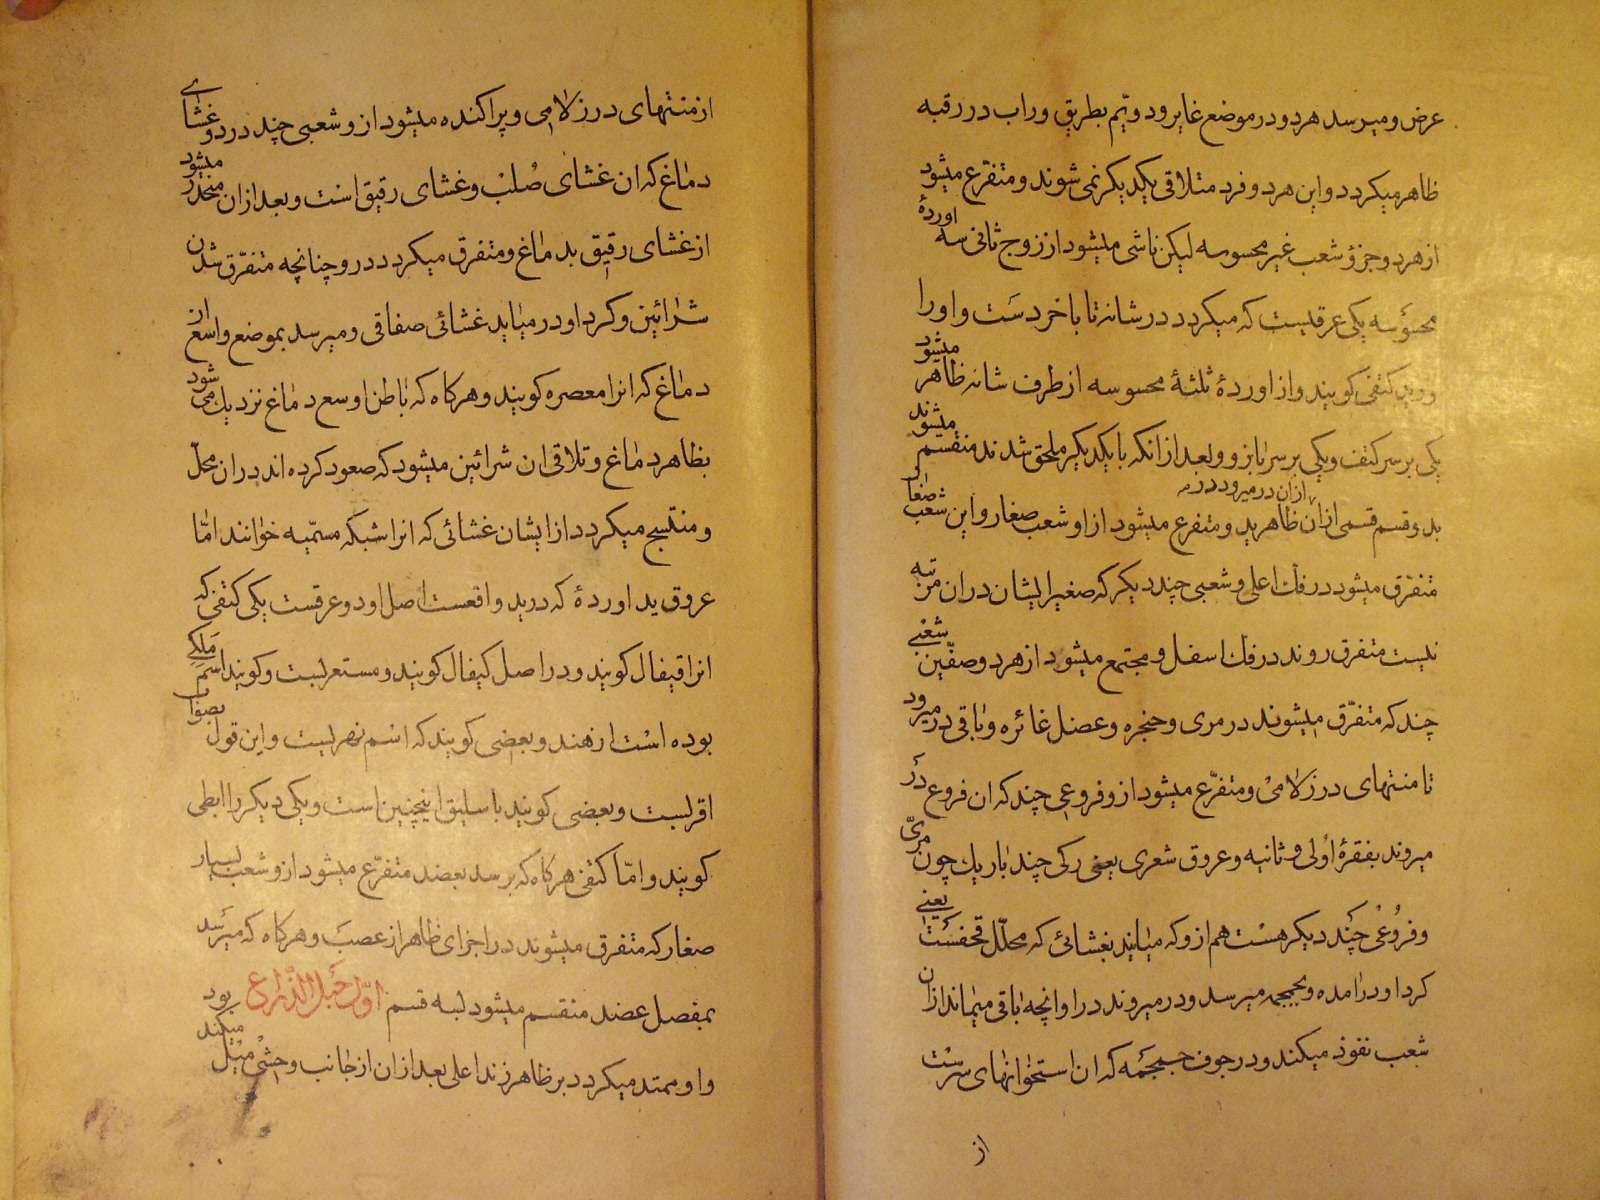 عرض و میرسد هر دو در موضع غایر و دویّم بطریق وراب در رقبه
ظاهر میکردد و این هر دو فرد متلاقی یکدیکر نمی شوند و متفرّع میشود
از هر دو جزؤ شعب غیر محسوسه لیکن ناشی میشود از زوج ثانی سه اوردهٔ
محسوٴسه یکی عرقیست که میکردد در شانه تا باخر دست و او را
ورید کتفی کویند و از اوردهٔ ثلثهٔ محسوسه از طرف شانه ظاهر میشود
یکی بر سر کتف و یکی بر سر بازو و بعد از انکه با یکدیکر ملحق شدند منقسم میشوند
از ان در میرود در
بدو قسم قسمی از ان ظاهرید و متفرع میشود از او شعب صغار و این شعب صغار
متفرّق میشود در فک اعلی و شعبی چند دیکر که صغیر ایشان در ان مرتبه
نیست متفرق روند در فک اسفل و مجتمع میشود از هر دو صفّین شعبی
چند که متفرّق میشوند در مری و حنجره و عضل غائره و باقی در میرود
تا منتهای درز لامی و متفرّع میشود از و فروعی چند که ان فروع در
میروند بفقرهٔ اولی و ثانیه و عروق شعری یعنی رکی چند باریک چون مری
و فروعی چند دیکر هست هم از و که میایند بغشائی که محلّل قحفست یعنی
کرد او در امده و بجمجمه میرسد و در میروند در او انچه باقی میماند از ان
شعب نفوذ میکند و در جوف جمجمه که ان استخوانهای سرست
از
از منتهای درز لامی و پراکنده میشود از و شعبی چند در دو غشای
دماغ که ان غشای صلب و غشای رقیق است و بعد از ان منحدر میشود
از غشای رقیق بدماغ و متفرق میکردد در و چنانچه متفرّق شدن
شرائین و کرد او در میاید غشائی صفاقی و میرسد بموضع واسع از
دماغ که انرا معصره کویند و هر کاه که باطن اوسع دماغ نزدیک می شود
بظاهر دماغ و تلاقی ان شرائین میشود که صعود کرده اند در ان محلّ
و منتسج میکردد از ایشان غشائی که انرا شبکه مسمّیه خوانند امّا
عروق ید اوردهٔ که در ید واقعست اصل او دو عرقست یکی کتفی که
انرا قیفال کویند و در اصل کیفال کویند و مستعربست و کویند اسم ملکی
بوده است از هند و بعضی کویند که اسم نهریست و این قول بصواب
اقربست و بعضی کویند باسلیق اینچنین است و یکی دیکر را ابطی
کویند و امّا کتفی هر کاه که برسد بعضد متفرّع میشود از و شعب بسیار
صغار که متفرق میشوند در اجزای ظاهر از عصب و هر کاه که میرسد
بمفصل عضد منقسم میشود بسه قسم اوّل حبل الذّراع بود
و او ممتد میکردد بر ظاهر زند اعلی بعد از ان از جانب وحشی میل میکند